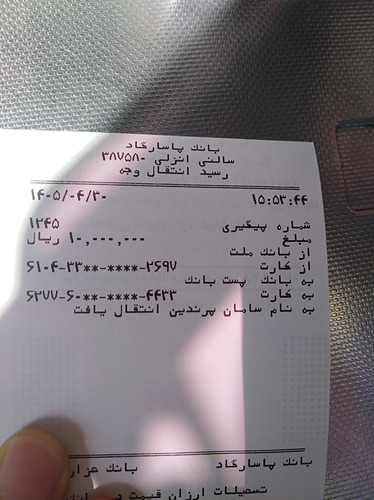 بانك پاسارگاد
سالنی انزلی -۳۸۷۵۸۰
رسید انتقال وجه
۱۴۰۵/۰۴/۳۰ ۱۵:۵۳:۴۴
شماره پیگیری ۱۲۴۵
مبلغ ۱۰,۰۰۰,۰۰۰ ریال
از بانك ملت
از كارت ۶۱۰۴-۳۳**-****-۲۶۹۷
به بانك پست بانك
به كارت ۶۲۷۷-۶۰**-****-۴۴۳۳
به نام سامان پرندین انتقال یافت
بانك پاسارگاد بانك هزار
تسهیلات ارزان قیمت در بانك